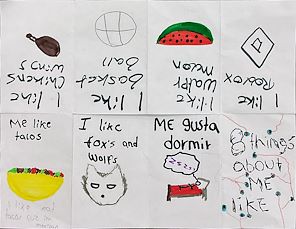 I like
Chikens
wins
I like
basket
Ball
I like
Water
melon
I like
Roblox
Me like
tacos
I like eat
tacos
I like
fox's and
wolfs
ME gusta
dormir
zzzz
8 things
about
ME
LIKE